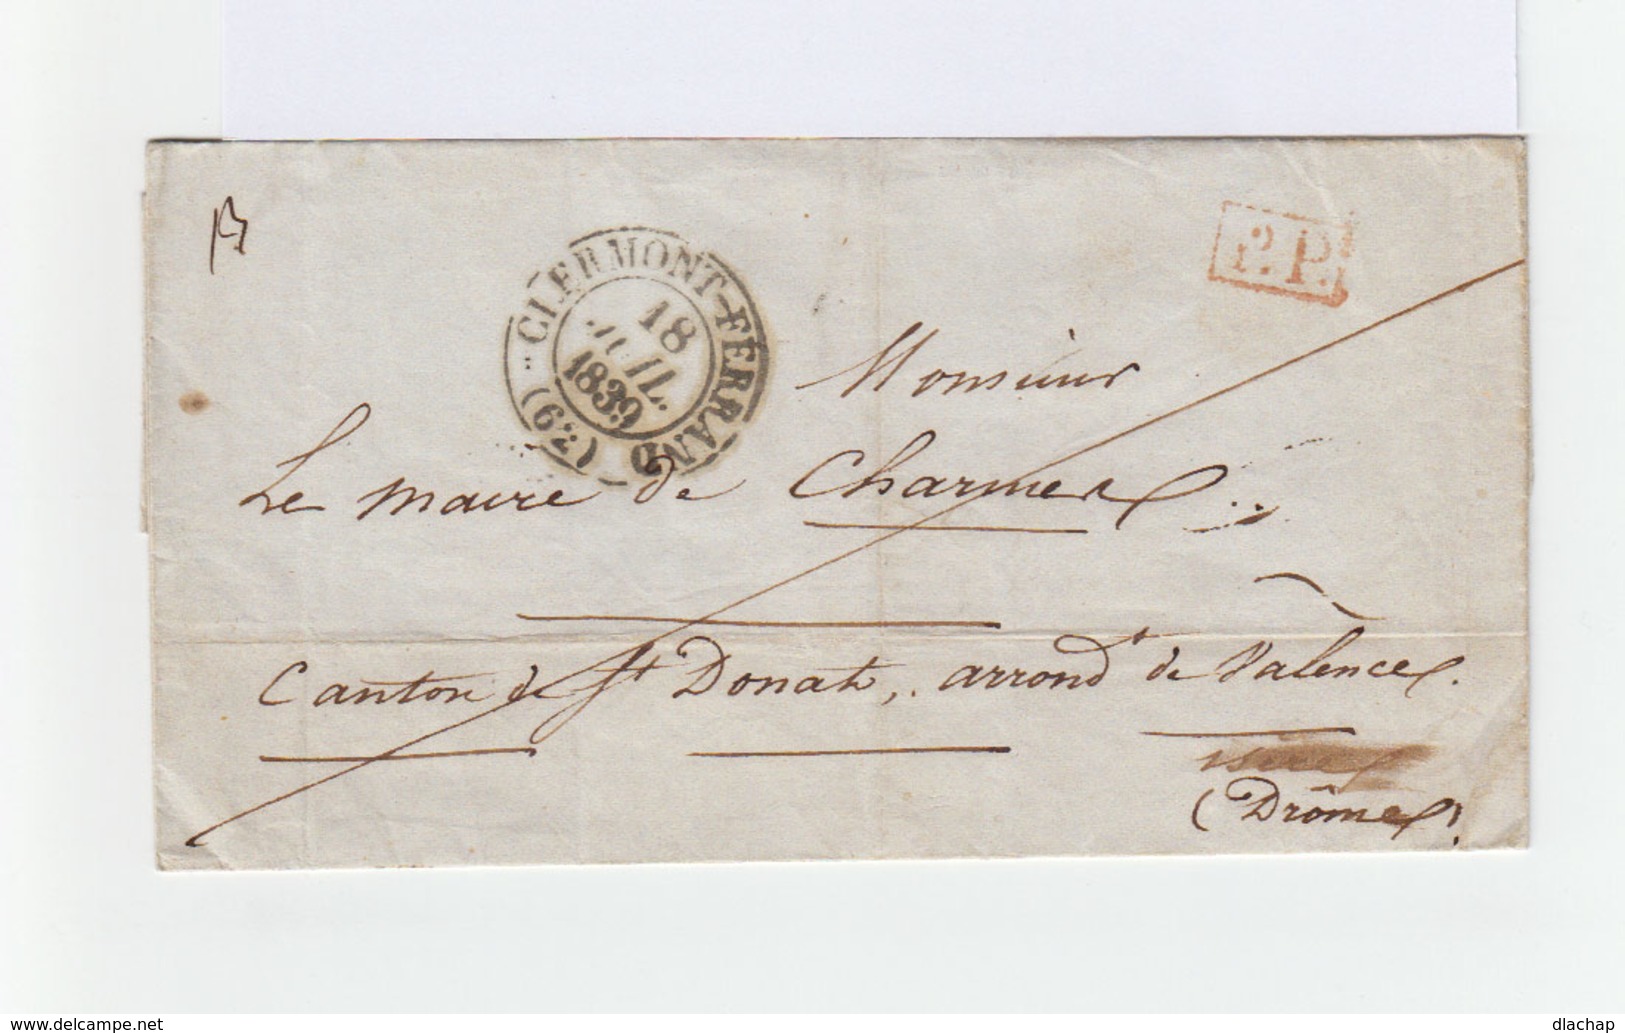 P.P.
CLERMONT-FERRAND (62)
18
JUIL.
1839
Monsieur
Le maire de Charmes
Canton de St Donat, arrondt de Valence.
(Drôme)
delcampe.net
dlachap